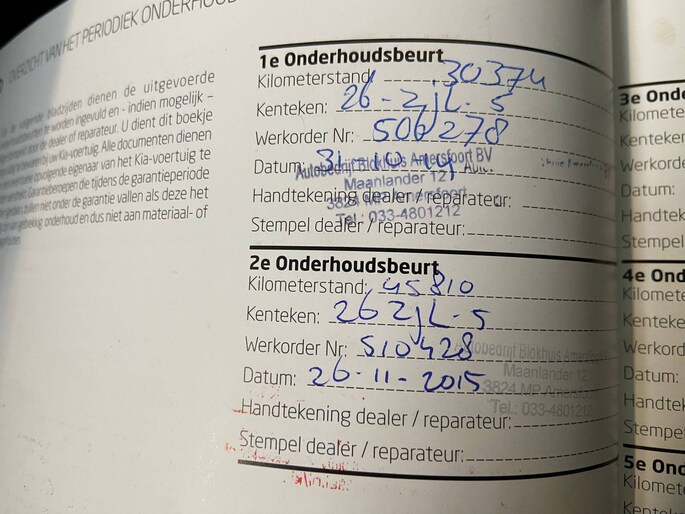 OVERZICHT VAN HET PERIODIEK ONDERHOUD
dienen de uitgevoerde
worden ingevuld en - indien mogelijk -
door de dealer of reparateur. U dient dit boekje
uw Kia-voertuig. Alle documenten dienen
opvolgende eigenaar van het Kia-voertuig te
Garantieberoepen die tijdens de garantieperiode
niet onder de garantie vallen als deze het
gebrekkig onderhoud en dus niet aan materiaal- of
1e Onderhoudsbeurt
Kilometerstand: 30374
Kenteken: 26-ZJL-5
Werkorder Nr: 506278
Datum: 31-10-14
Autobedrijf Blokhuis Amersfoort BV
Maanlander 12
3824 MP Amersfoort
Tel.: 033-4801212
Handtekening dealer / reparateur:
Stempel dealer / reparateur:
2e Onderhoudsbeurt
Kilometerstand: 45810
Kenteken: 26 ZJL-5
Werkorder Nr: 510428
Datum: 26-11-2015
Autobedrijf Blokhuis Amersfoort
Maanlander 12
3824 MP Amersfoort
Tel.: 033-4801212
Handtekening dealer / reparateur:
Stempel dealer / reparateur:
3e Ond
Kilomete
Kenteken
Werkord
Datum:
Handtek
Stempel
4e Ond
Kilomete
Kenteke
Werkord
Datum:
Handtek
Stempe
5e Ond
Kilomet
Kenteke